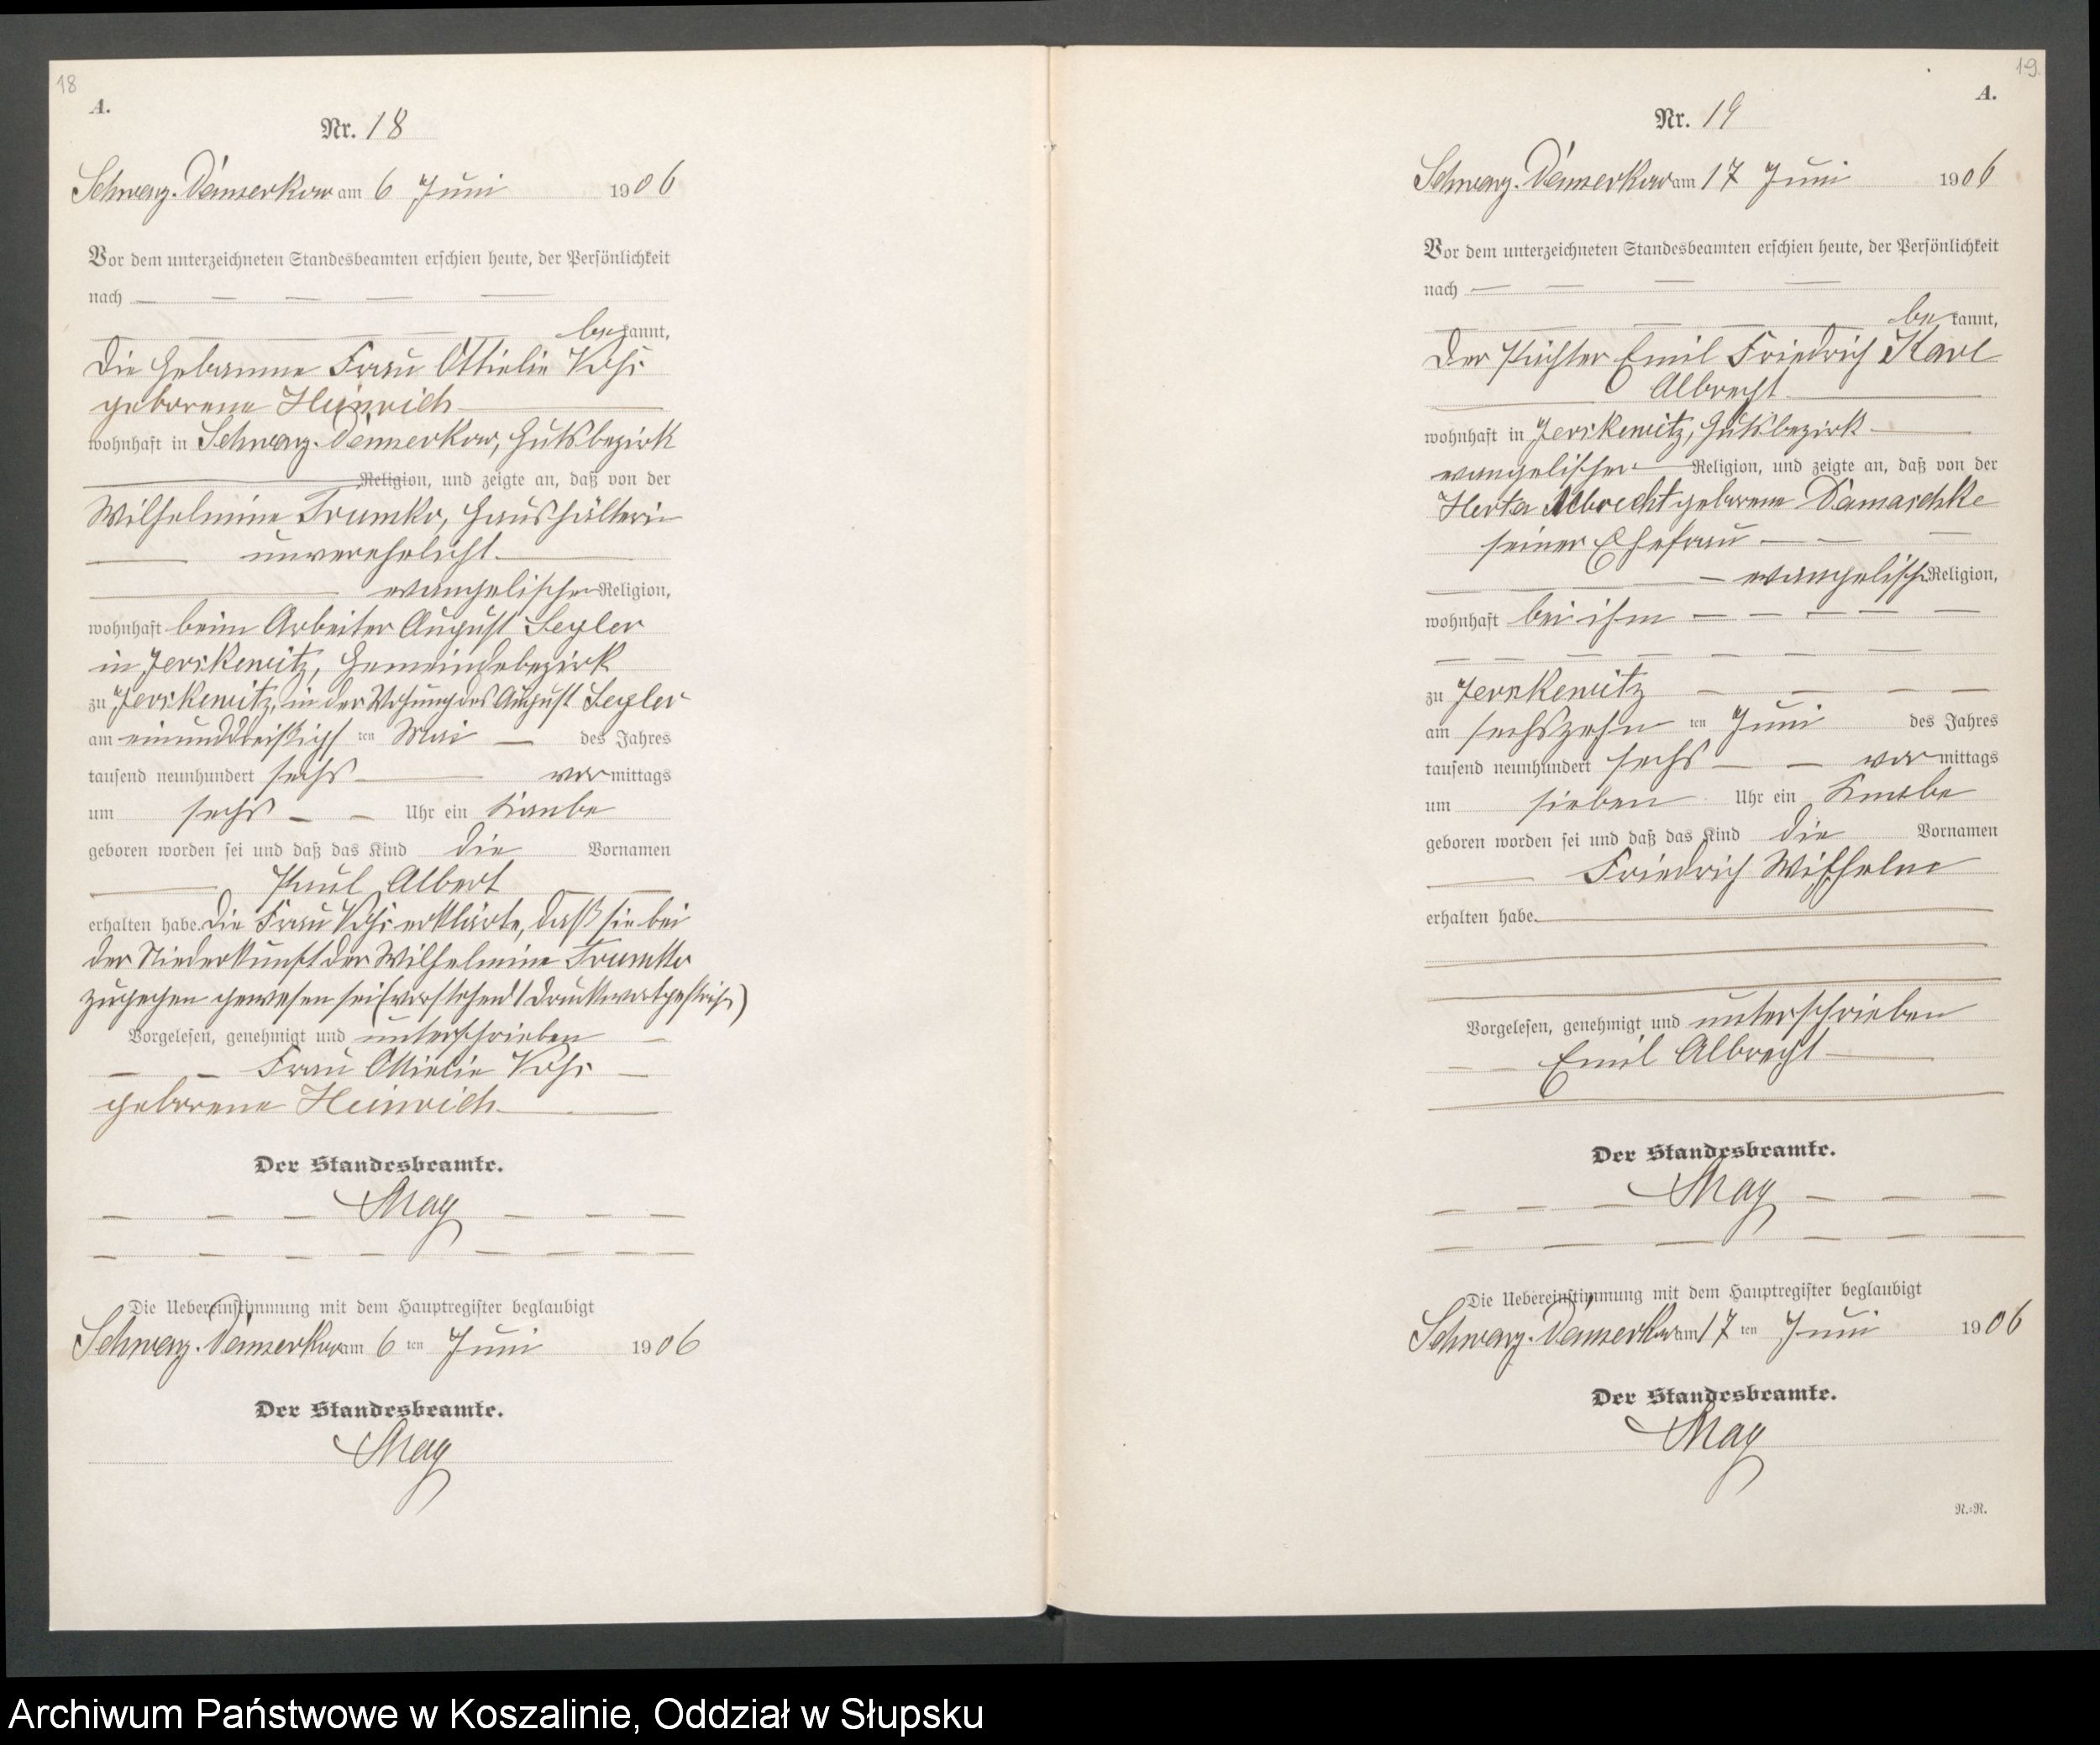 18
A.
Nr. 18
Schwarz-Damerkow am 6 Juni 1906
Vor dem unterzeichneten Standesbeamten erschien heute, der Persönlichkeit
nach
bekannt,
die Hebamme Frau Ottielie
geborene Heinrich
wohnhaft in Schwarz-Damerkow, Gutsbezirk
Religion, und zeigte an, daß von der
Wilhelmine, Haushälterin
unverehelicht
evangelischer Religion,
wohnhaft beim Arbeiter August Segler
in Jerskewitz, Gemeindebezirk
zu Jerskewitz, in der Wohnung des August Segler
am einunddreißigst ten Mai des Jahres
tausend neunhundert sechs vormittags
um sechs Uhr ein Knabe
geboren worden sei und daß das Kind die Vornamen
Paul Albert
erhalten habe. Die Frau erklärte, daß sie bei
der Niederkunft der Wilhelmine
zugegen gewesen sei (vorstehend 1 Druckwort gestrichen)
Vorgelesen, genehmigt und unterschrieben
Frau Ottielie
geborene Heinrich
Der Standesbeamte.
Mag
Die Uebereinstimmung mit dem Hauptregister beglaubigt
Schwarz-Damerkow am 6 ten Juni 1906
Der Standesbeamte.
Mag
19.
A.
Nr. 19
Schwarz-Damerkow am 17 Juni 1906
Vor dem unterzeichneten Standesbeamten erschien heute, der Persönlichkeit
nach
bekannt,
der Pächter Emil Friedrich Karl
Albrecht
wohnhaft in Jerskewitz, Gutsbezirk
evangelischer Religion, und zeigte an, daß von der
Herta Albrecht geborene Damaschke
seiner Ehefrau
evangelischer Religion,
wohnhaft bei ihm
zu Jerskewitz
am sechszehn ten Juni des Jahres
tausend neunhundert sechs vormittags
um sieben Uhr ein Knabe
geboren worden sei und daß das Kind die Vornamen
Friedrich Wilhelm
erhalten habe.
Vorgelesen, genehmigt und unterschrieben
Emil Albrecht
Der Standesbeamte.
Mag
Die Uebereinstimmung mit dem Hauptregister beglaubigt
Schwarz-Damerkow am 17 ten Juni 1906
Der Standesbeamte.
Mag
R.=R.
Archiwum Państwowe w Koszalinie, Oddział w Słupsku